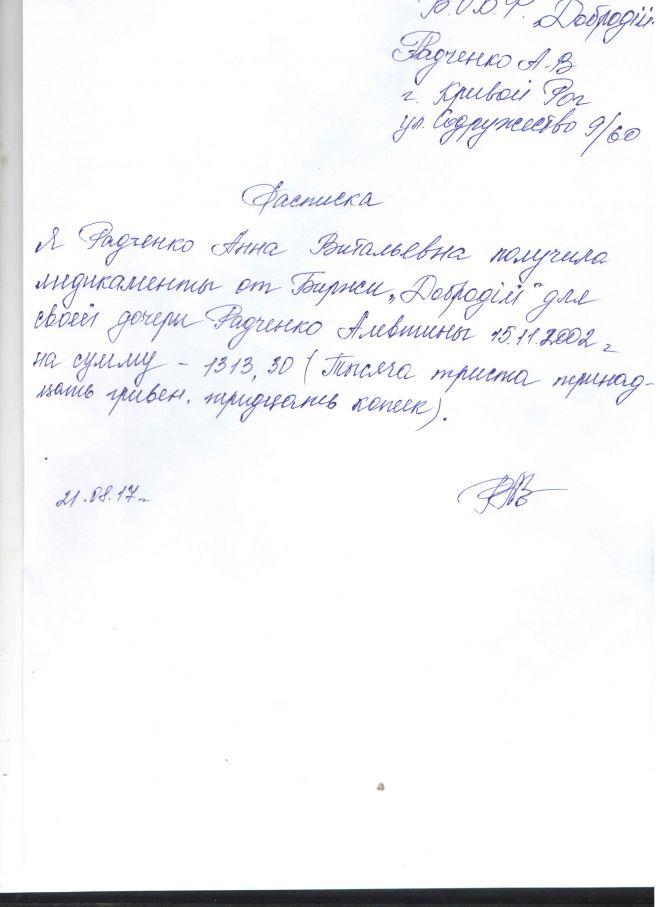 В.О.Б.Ф. „Добродій"
Радченко А.В
г. Кривой Рог
ул. Содружество 9/60
Расписка
Я Радченко Анна Витальевна получила
медикаменты от Биржи „Добродій" для
своей дочери Радченко Алевтины 15.11.2002 г
на сумму – 1313,30 (Тысяча триста тринад-
цать гривен. тридцать копеек).
21.08.17г